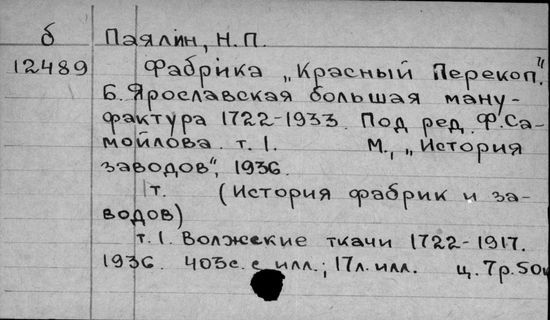 б Паялин, Н.П.
12489 Фабрика „Красный Перекоп".
Б. Ярославская большая ману-
фактура 1722-1933. Под ред. Ф.Са-
мойлова. т. 1. М., „История
заводов", 1936.
1т. (История фабрик и за-
водов)
т. 1. Волжские ткачи 1722-1917.
1936. 403с. с илл.; 17л. илл. ц. 7р. 50к